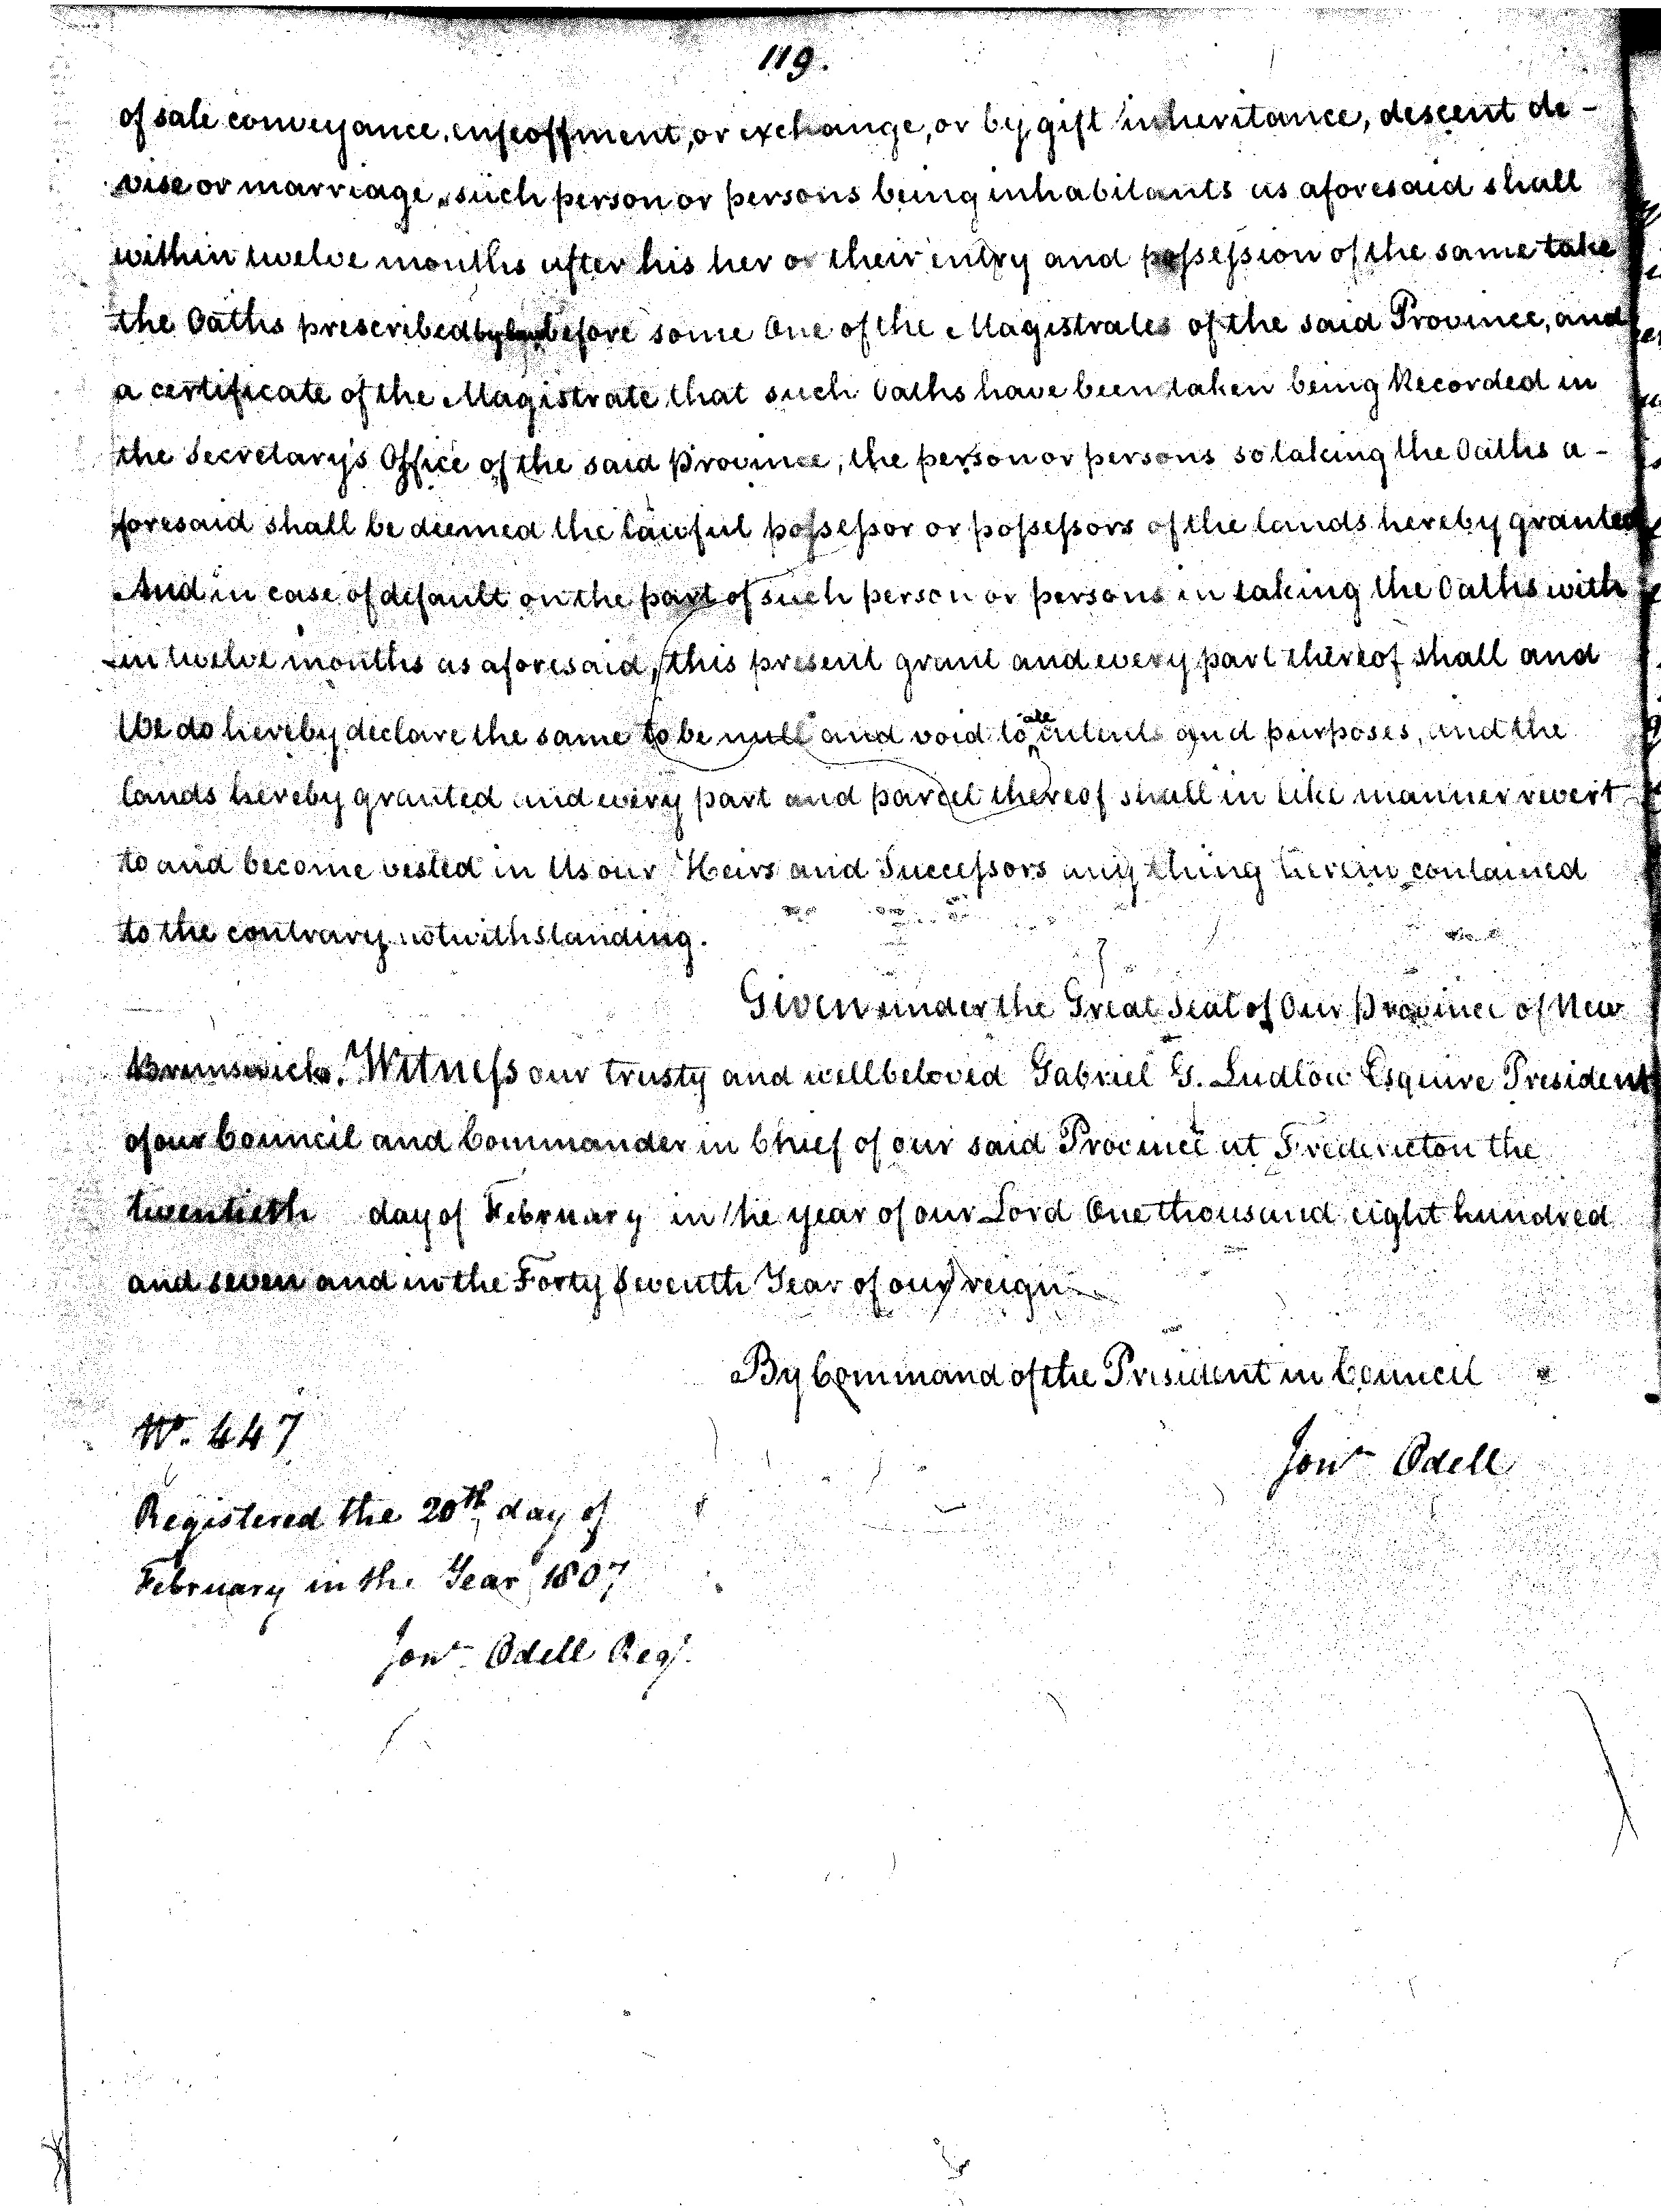 119.
of sale conveyance, enfeoffment, or exchange, or by gift inheritance, descent de-
vise or marriage, such person or persons being inhabitants as aforesaid shall
within twelve months after his her or their entry and possession of the same take
the Oaths prescribed by law before some One of the Magistrates of the said Province, and
a certificate of the Magistrate that such Oaths have been taken being Recorded in
the Secretary's Office of the said Province, the person or persons so taking the Oaths a-
foresaid shall be deemed the lawful possessor or possessors of the lands hereby granted
And in case of default on the part of such person or persons in taking the Oaths with
-in twelve months as aforesaid, this present grant and every part thereof shall and
We do hereby declare the same to be null and void to all intents and purposes, and the
lands hereby granted and every part and parcel thereof shall in like manner revert
to and become vested in Us our Heirs and Successors any thing herein contained
to the contrary notwithstanding.
Given under the Great Seal of Our Province of New
Brunswick. Witness our trusty and wellbeloved Gabriel G. Ludlow Esquire President
of our Council and Commander in Chief of our said Province at Fredericton the
twentieth day of February in the year of our Lord One thousand eight hundred
and seven and in the Forty Seventh Year of our reign
By Command of the President in Council
Jonn Odell
No. 447
Registered the 20th day of
February in the Year 1807
Jonn Odell Regr.